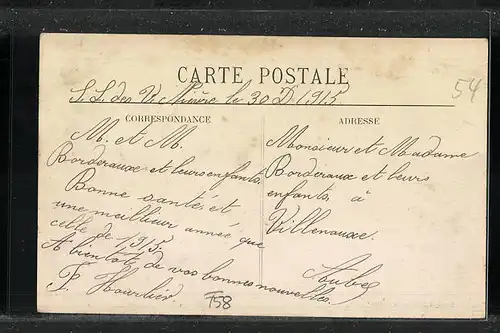 CARTE POSTALE
54
S. L. des V. Nièvre le 30 D. 1915
CORRESPONDANCE
M. et M.
Borderaux et leurs enfants,
Bonne santé, et
une meilleur année que
celle de 1915.
A bientôt de vos bonnes nouvelles
F.
T58
ADRESSE
Monsieur et Madame
Borderaux et leurs
enfants, à
Villenauxe.
Aube